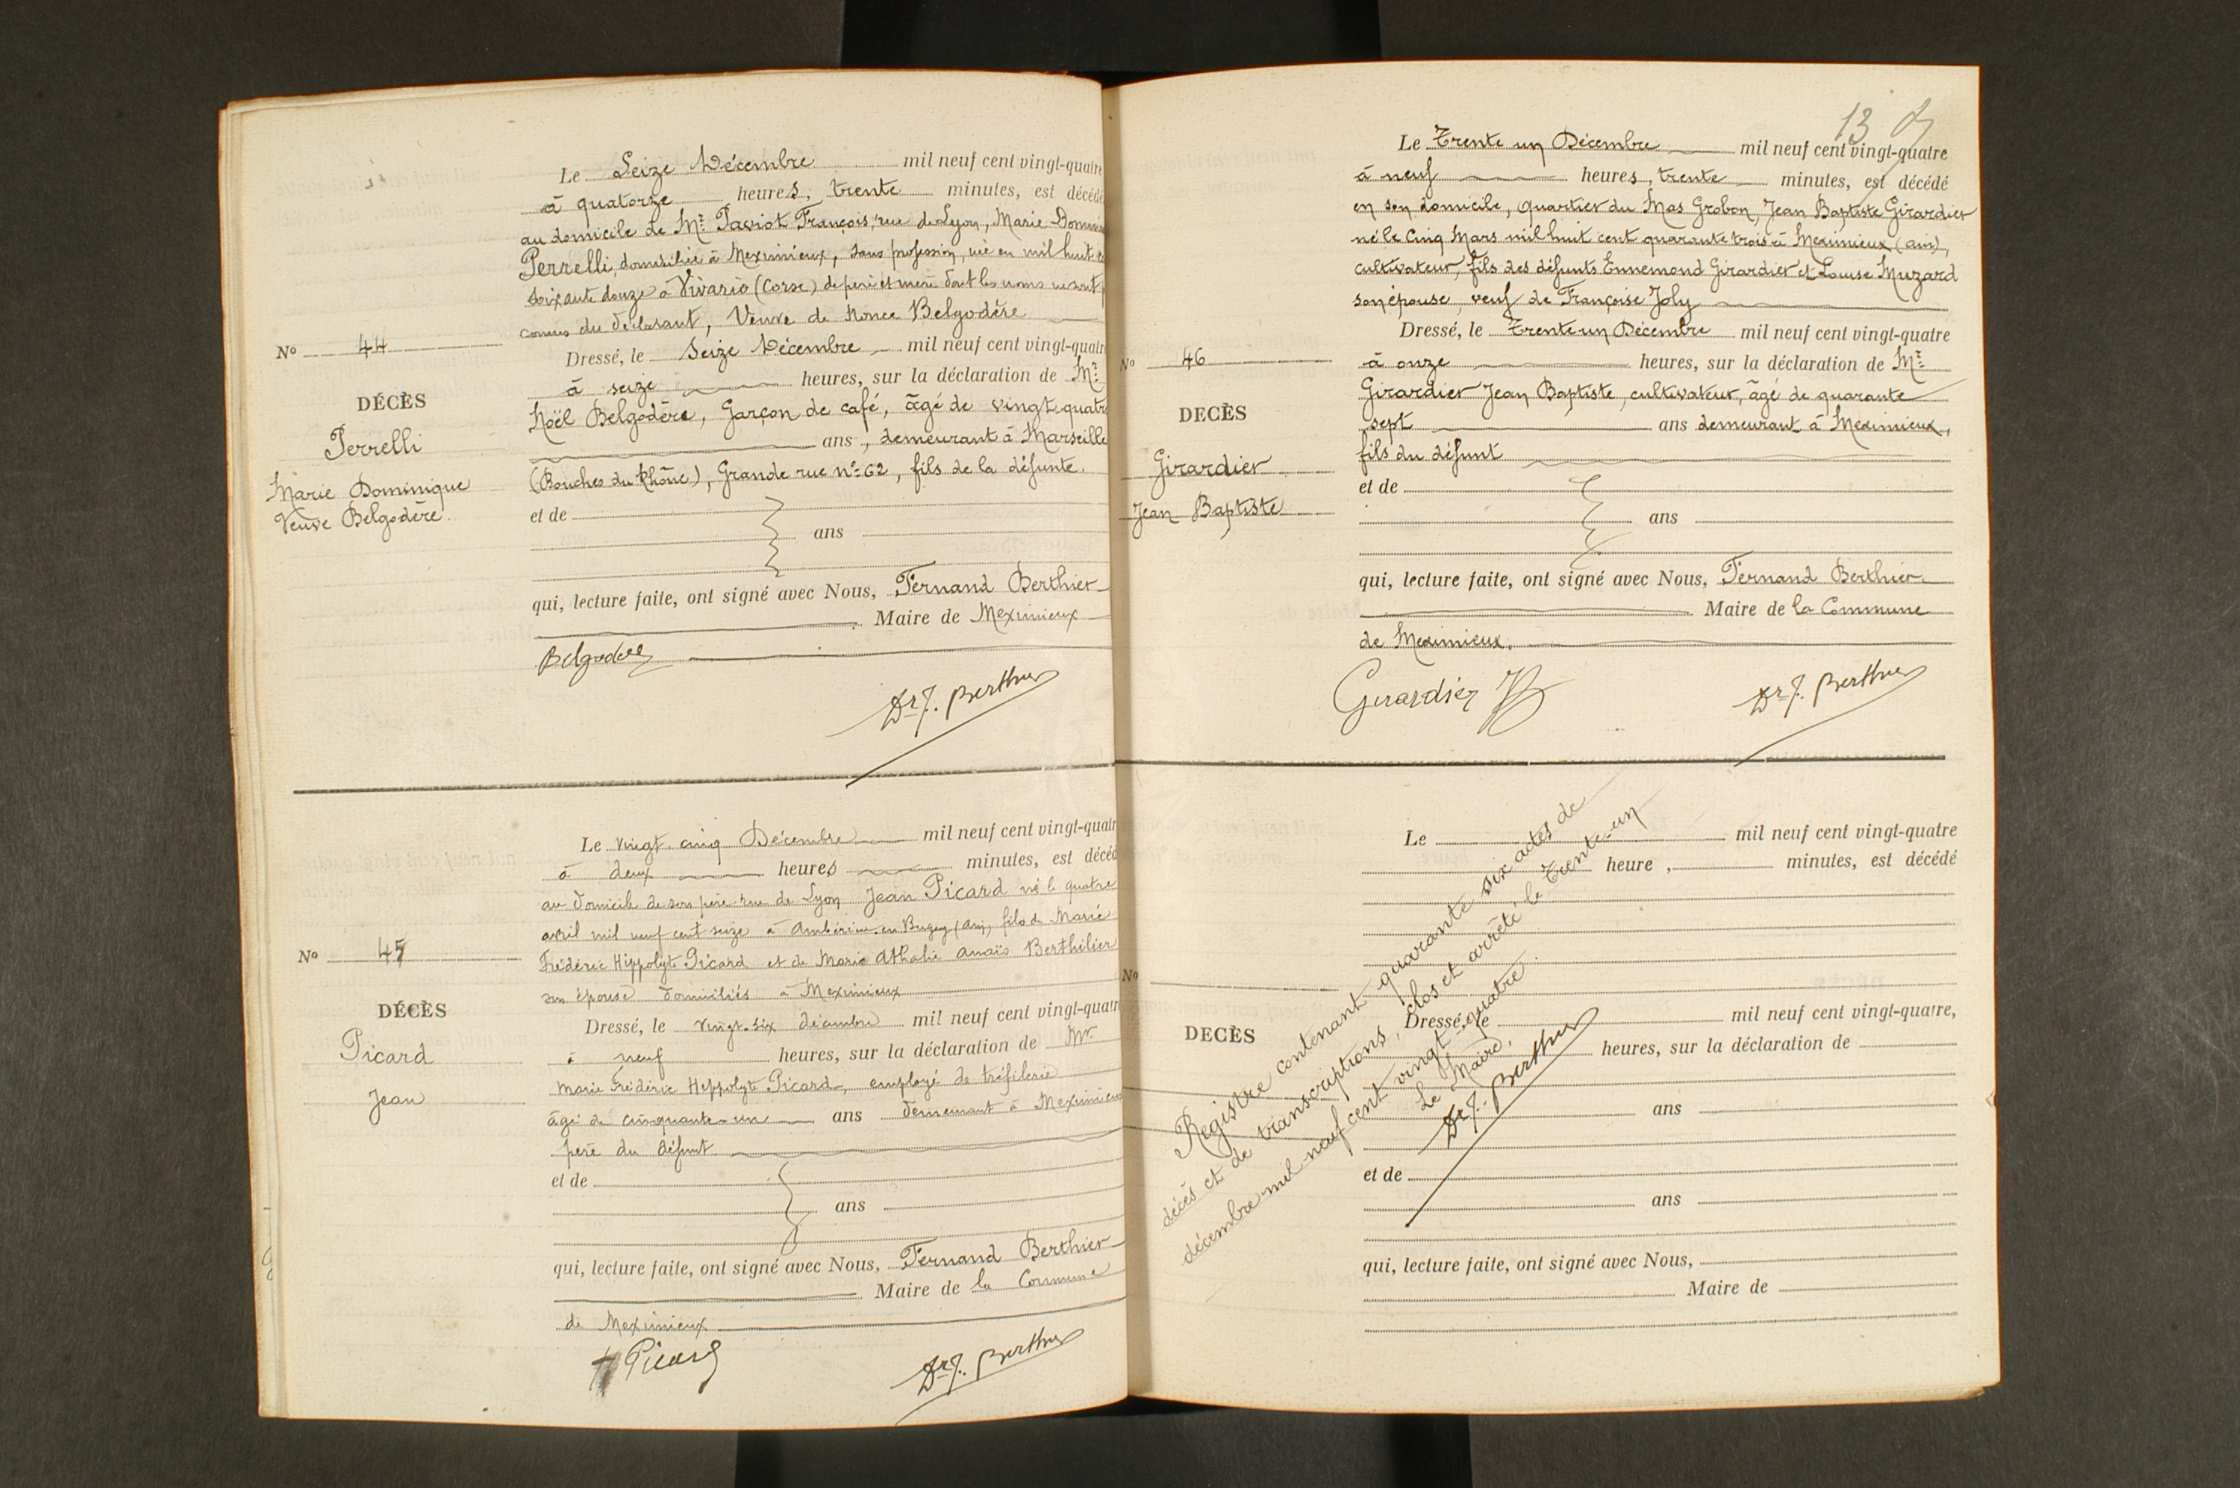 Le Seize Décembre mil neuf cent vingt-quatre
à quatorze heures, trente minutes, est décédé
au domicile de Mr Paviot François, rue de Lyon, Marie
Perrelli, domiciliée à Meximieux, sans profession, née en mil huit
soixante douze à Vivario (Corse) de père et mère dont les noms ne sont
connus du déclarant, Veuve de Nonce Belgodère
No 44
DÉCÈS
Perrelli
Marie Dominique
Veuve Belgodère.
Dressé, le Seize Décembre mil neuf cent vingt-quatre
à seize heures, sur la déclaration de Mr
Noël Belgodère, Garçon de café, âgé de vingt-quatre
ans, demeurant à Marseille
(Bouches du Rhône), Grande rue n° 62, fils de la défunte.
et de
ans
qui, lecture faite, ont signé avec Nous, Fernand Berthier
Maire de Meximieux
Belgodère
Dr F. Berthier
Le vingt-cinq Décembre mil neuf cent vingt-quatre
à deux heures minutes, est décédé
au domicile de son père rue de Lyon Jean Picard né le quatre
avril mil neuf cent seize à Ambérieu-en-Bugey (Ain) fils de Marie
Frédéric Hippolyte Picard et de Marie Athalie Anaïs Berthilier
son épouse domiciliés à Meximieux
No 45
DÉCÈS
Picard
Jean
Dressé, le vingt-six décembre mil neuf cent vingt-quatre
à neuf heures, sur la déclaration de Mr
Marie Frédéric Hippolyte Picard, employé de tréfilerie
âgé de cinquante-un ans demeurant à Meximieux
père du défunt
et de
ans
qui, lecture faite, ont signé avec Nous, Fernand Berthier
Maire de la Commune
de Meximieux
H Picard
Dr F. Berthier
13
Le Trente un Décembre mil neuf cent vingt-quatre
à neuf heures, trente minutes, est décédé
en son domicile, quartier du Mas Grobon, Jean Baptiste Girardier
né le Cinq Mars mil huit cent quarante trois à Meximieux (Ain),
cultivateur, fils des défunts Ennemond Girardier et Louise Muzard
son épouse, veuf de Françoise Joly
No 46
DECÈS
Girardier
Jean Baptiste
Dressé, le Trente un Décembre mil neuf cent vingt-quatre
à onze heures, sur la déclaration de Mr
Girardier Jean Baptiste, cultivateur, âgé de quarante
sept ans demeurant à Meximieux,
fils du défunt
et de
ans
qui, lecture faite, ont signé avec Nous, Fernand Berthier
Maire de la Commune
de Meximieux.
Girardier JB
Dr F. Berthier
Le mil neuf cent vingt-quatre
heure, minutes, est décédé
No
DECÈS
Dressé, le mil neuf cent vingt-quatre,
heures, sur la déclaration de
ans
et de
ans
qui, lecture faite, ont signé avec Nous,
Maire de
Registre contenant quarante six actes de
décès et de transcriptions, clos et arrêté le Trente-un
décembre mil neuf cent vingt-quatre.
Le Maire,
Dr F. Berthier